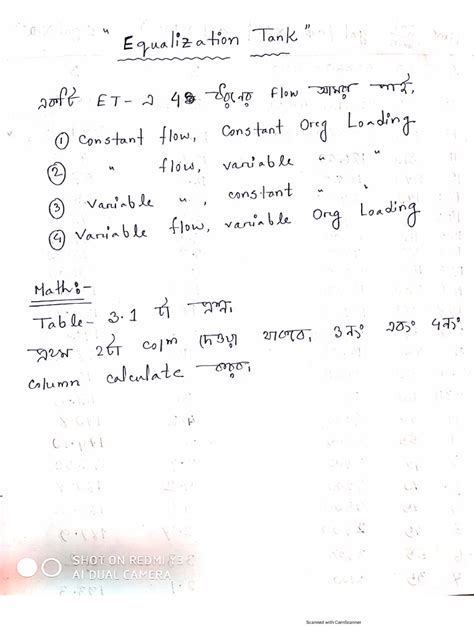 " Equalization Tank "
একটি ET- এ 4 ধরনের Flow আমরা পাই.
① Constant flow, Constant Org Loading
② " flow, variable " "
③ variable ", constant " "
④ Variable flow, variable Org Loading
Math:-
Table- 3.1 টা প্রশ্ন.
প্রথম 2টা colm দেওয়া থাকবে. 3নং এবং 4নং.
column calculate করব.
SHOT ON REDMI
AI DUAL CAMERA
Scanned with CamScanner